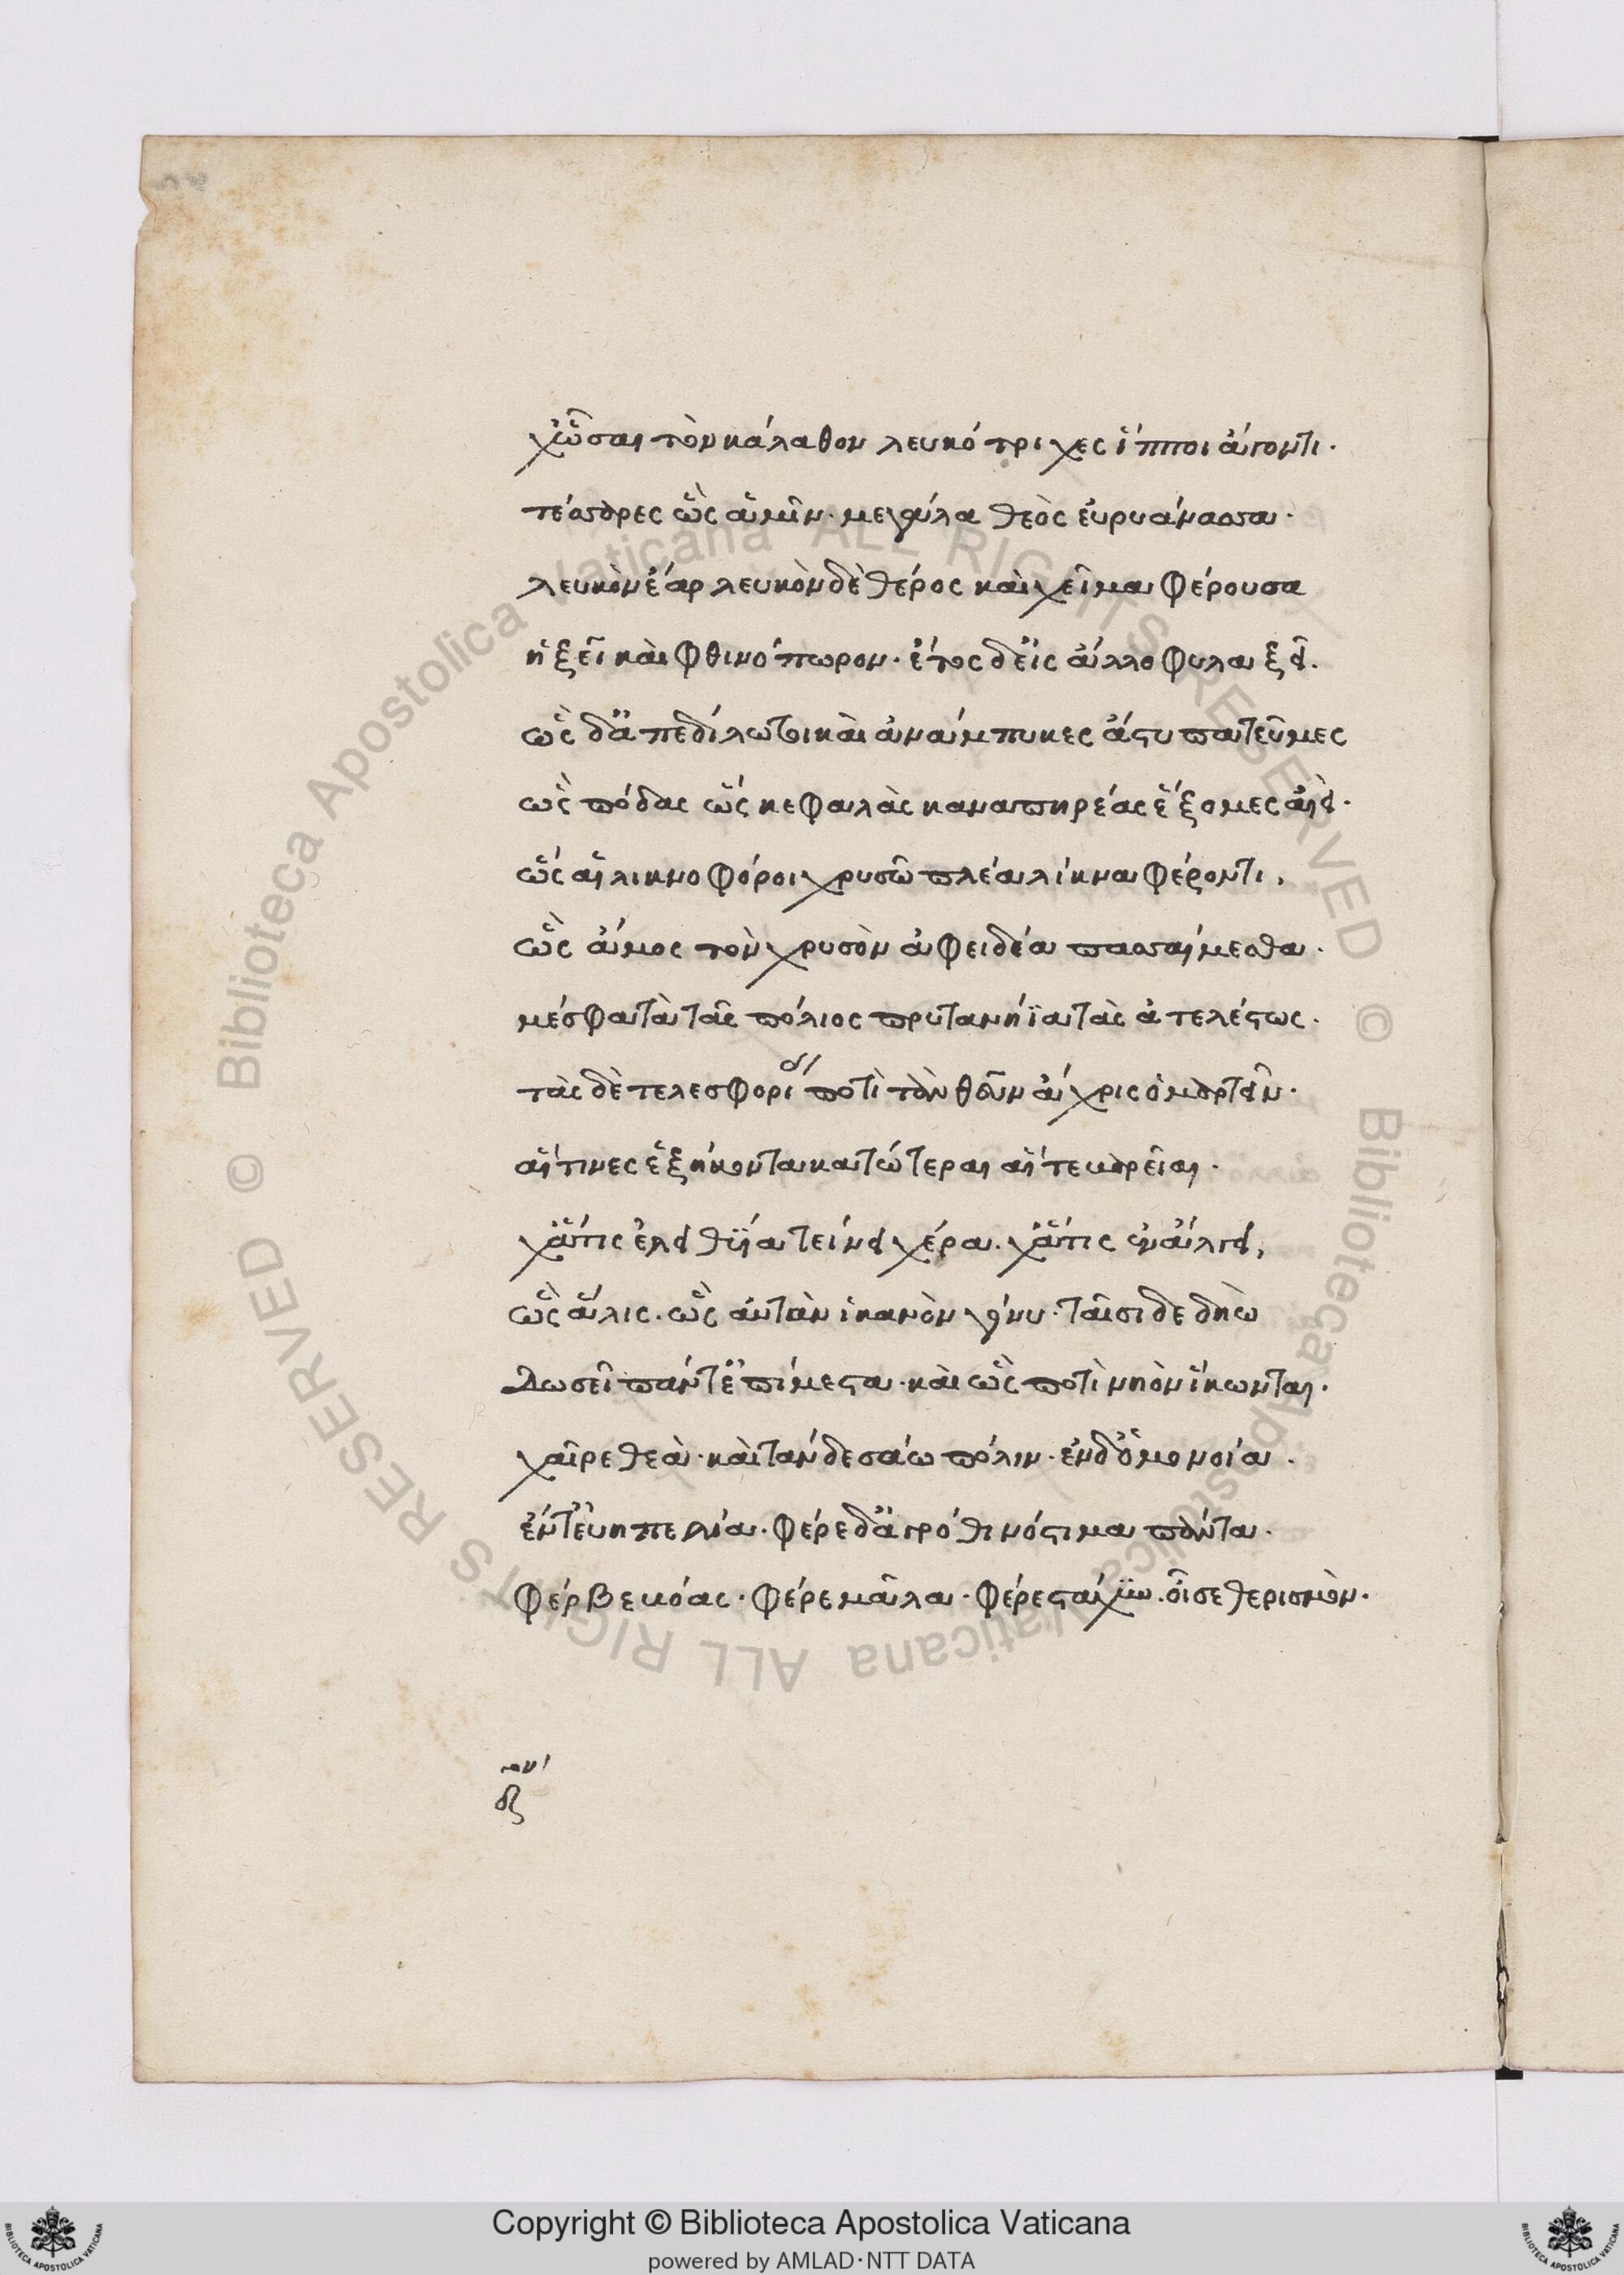 χὥσαι τὸν κάλαθον λευκότριχες ἵπποι ἄγοντι.
τέσσαρες ὣς ἅμιν. μεγάλα θεὸς εὐρυάνασσα.
λευκὸν ἔαρ λευκὸν δὲ θέρος καὶ χεῖμα φέρουσα
ἡξεῖ καὶ φθινόπωρον. ἔτος δ' εἰς ἄλλο φυλαξεῖ.
ὡς δ' ἀπεδίλωτοι καὶ ἀνάμπυκες ἄστυ πατεῦμες
ὡς πόδας ὣς κεφαλὰς παναπηρέας ἕξομες αἰεί.
ὥς αἱ λικνοφόροι χρυσῶ πλέα λίκνα φέροντι,
ὣς ἄμος τὸν χρυσὸν ἀφειδέα πασσαίμεσθα.
μέσφα τὰ τᾶς πόλιος πρυτανήϊα τὰς ἀτελέστως.
τὰς δὲ τελεσφορί ποτὶ τὰν θοῦν ἄχρις ὁμαρτεῖν.
αἵτινες ἑξήκοντα κατώτεραι αἵτε βαρεῖαι.
χἅτις ἐλειθυίᾳ τείνει χέρα. χἅτις ἐν ἄλγει,
ὣς ἅλις. ὣς αὐτὰν ἱκανὸν γόνυ. ταῖσι δε δηὼ
δωσεῖ πάντ' ἐπίμεστα. καὶ ὣς ποτὶ νηὸν ἵκωνται.
χαῖρε θεὰ. καὶ τάνδε σάω πόλιν. ἐν δ' ὁμονοίᾳ.
ἔν τ' εὐηπελίᾳ. φέρε δ' ἀγρόθι νόστιμα πάντα.
φέρβε βόας. φέρε μᾶλα. φέρε στάχυν. οἶσε θερισμὸν.
Copyright © Biblioteca Apostolica Vaticana
powered by AMLAD·NTT DATA
© Biblioteca Apostolica Vaticana ALL RIGHTS RESERVED
© Biblioteca Apostolica Vaticana ALL RIGHTS RESERVED